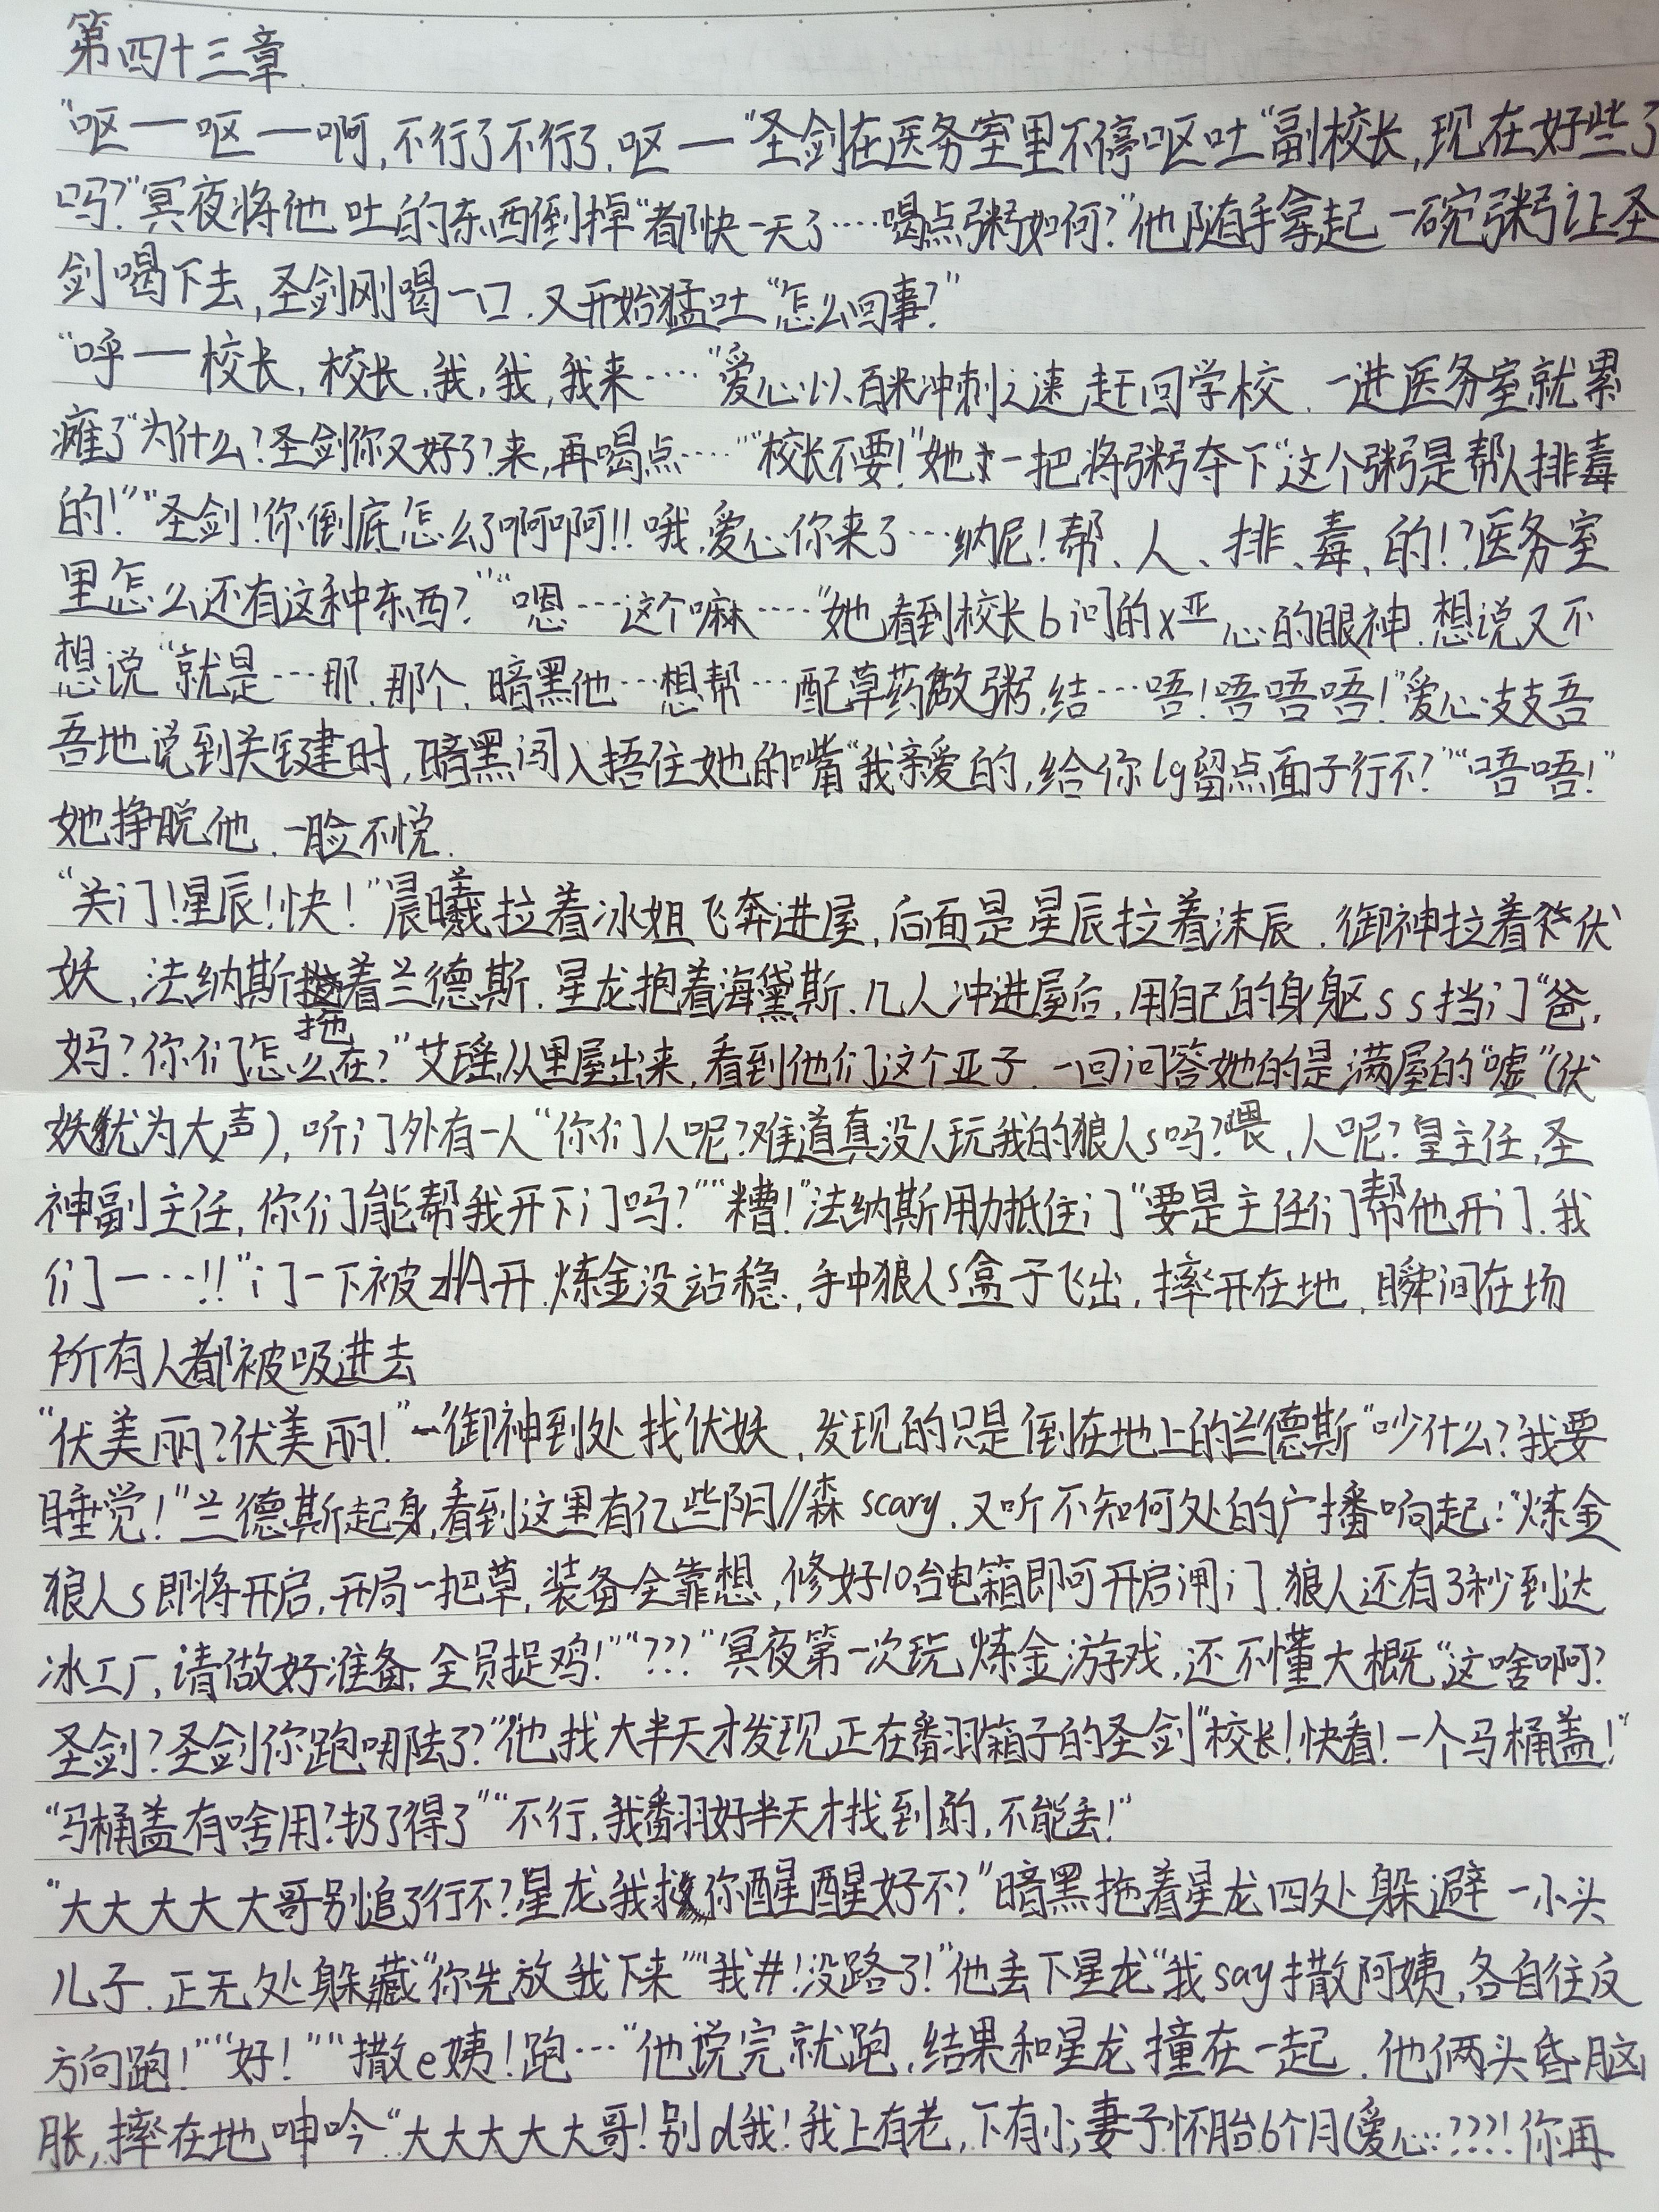 第四十三章
“呕一呕一啊,不行了不行了,呕一”圣剑在医务室里不停呕吐“副校长,现在好些了
吗?”冥夜将他吐的东西倒掉“都快一天了……喝点粥如何?”他随手拿起一碗粥让圣
剑喝下去,圣剑刚喝一口,又开始猛吐“怎么回事?”
“呼一校长,校长,我,我,我来……”爱心以百米冲刺之速赶回学校,一进医务室就累
瘫了“为什么?圣剑你又好了?来,再喝点……”“校长不要!”她一把将粥夺下“这个粥是帮人排毒
的!”“圣剑!你倒底怎么了啊啊!!哦,爱心你来了…纳尼!帮、人、排、毒、的!?医务室
里怎么还有这种东西?”“嗯…这个嘛……”她看到校长b问的x亚心的眼神,想说又不
想说“就是…那,那个,暗黑他…想帮…配草药做粥,结…唔!唔唔唔!”爱心支支吾
吾地说到关键时,暗黑闯入捂住她的嘴“我亲爱的,给你lg留点面子行不?”“唔唔!”
她挣脱他,一脸不悦.
“关门!星辰!快!”晨曦拉着冰姐飞奔进屋,后面是星辰拉着沫辰,御神拉着伏
妖,法纳斯拖着兰德斯,星龙抱着海黛斯,几人冲进屋后,用自己的身躯ss挡门“爸,
妈?你们怎么在?”艾瑶从里屋出来,看到他们这个亚子,一回问答她的是满屋的“嘘”(伏
妖犹为大声),听门外有一人“你们人呢?难道真没人玩我的狼人s吗?喂,人呢?皇主任,圣
神副主任,你们能帮我开下门吗?”“糟!”法纳斯用力抵住门“要是主任们帮他开门,我
们一…!!”门一下被開,炼金没站稳,手中狼人s盒子飞出,摔开在地,瞬间在场
所有人都被吸进去
“伏美丽?伏美丽!”御神到处找伏妖,发现的只是倒在地上的兰德斯“吵什么?我要
睡觉!”兰德斯起身,看到这里有亿些阴//森scary,又听不知何处的广播响起:“炼金
狼人s即将开启,开局一把草,装备全靠想,修好10台电箱即可开启闸门,狼人还有3秒到达
冰工厂,请做好准备,全员捉鸡!”“???”冥夜第一次玩炼金游戏,还不懂大概“这啥啊?
圣剑?圣剑你跑哪去了?”他找大半天才发现正在翻箱子的圣剑“校长!快看!一个马桶盖!”
“马桶盖有啥用?扔了得了”“不行,我翻好半天才找到的,不能丢!”
“大大大大大哥别追了行不?星龙我求你醒醒好不?”暗黑拖着星龙四处躲避一小头
儿子,正无处躲藏“你先放我下来”“我#!没路了!”他丢下星龙“我say撒阿姨,各自往反
方向跑!”“好!”“撒e姨!跑…”他说完就跑,结果和星龙撞在一起,他俩头昏脑
胀,摔在地呻吟“大大大大大哥!别d我!我上有老,下有小,妻子怀胎6个月(爱心:???!你再